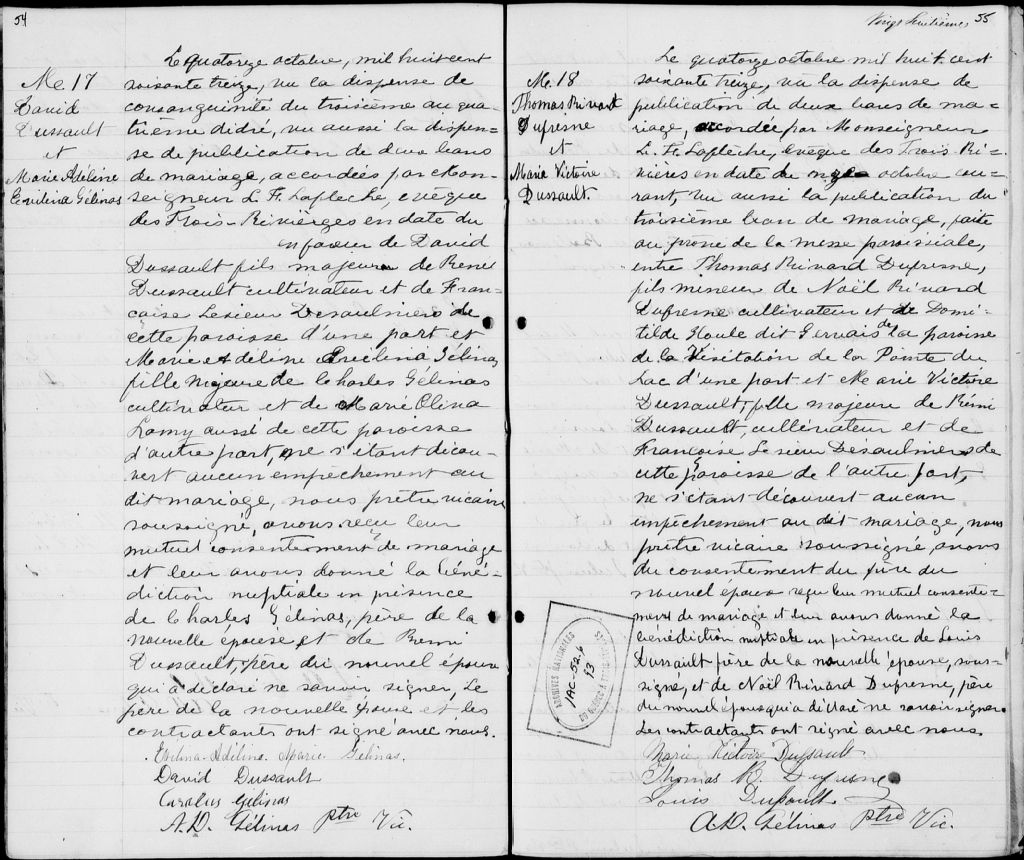 54
M. 17
David
Dussault
et
Marie Adéline
Evilina Gélinas
Le quatorze octobre, mil huit cent
soixante treize, vu la dispense de
consanguinité du troisième au qua-
trième didré, vu aussi la dispen-
se de publication de deux bans
de mariage, accordées par Mon-
seigneur L. F. Lafleche, evêque
des Trois-Rivièrges en date du
en faveur de David
Dussault fils majeur de Remi
Dussault cultivateur et de Fran-
çoise Lesieur Desaulniers de
cette paroisse d'une part et
Marie Adeline Evelina Gélinas
fille majeure de Charles Gélinas
cultivateur et de Marie Olina
Lamy aussi de cette paroisse
d'autre part, ne s'étant décou-
vert aucun empêchement au
dit mariage, nous prêtre vicaire
soussigné, avons reçu leur
mutuel consentement de mariage
et leur avons donné la béné-
diction nuptiale en présence
de Charles Gélinas, père de la
nouvelle épouse et de Remi
Dussault, père du nouvel époux
qui a déclaré ne savoir signer, Le
père de la nouvelle épouse et les
contractants ont signé avec nous.
Evilina Adélina Marie Gélinas.
David Dussault
Carolus Gélinas
A. D. Gélinas ptre Vic.
Vingt huitième 55
M. 18
Thomas Rivard
Dufresne
et
Marie Victoire
Dussault.
Le quatorze octobre mil huit cent
soixante treize, vu la dispense de
publication de deux bans de ma-
riage, accordée par Monseigneur
L. F. Laflèche, evêque des Trois-Ri-
vières en date de octobre cou-
rant, vu aussi la publication du
troisième ban de mariage, faite
au prône de la messe paroissiale,
entre Thomas Rivard Dufresne,
fils mineur de Noël Rivard
Dufresne cultivateur et de Domi-
tilde Houle dit Gervais de la paroisse
de la Visitation de la Pointe du
Lac d'une part et Marie Victoire
Dussault, fille majeure de Rémi
Dussault, cultivateur et de
Françoise Lesieur Désaulniers de
cette paroisse de l'autre part,
ne s'étant découvert aucun
empêchement au dit mariage, nous
prêtre vicaire soussigné avons
du consentement du père du
nouvel epoux reçu leur mutuel consente-
ment de mariage et leur avons donné la
bénédiction nuptiale en présence de Louis
Dussault frère de la nouvelle épouse, sous-
signé, et de Noël Rivard Dufresne, père
du nouvel époux qui a déclaré ne savoir signer
Les contractants ont signé avec nous.
Marie Victoire Dussault
Thomas R. Dufresne
Louis Dussault
A. D. Gélinas ptre Vic.
ARCHIVES NATIONALES